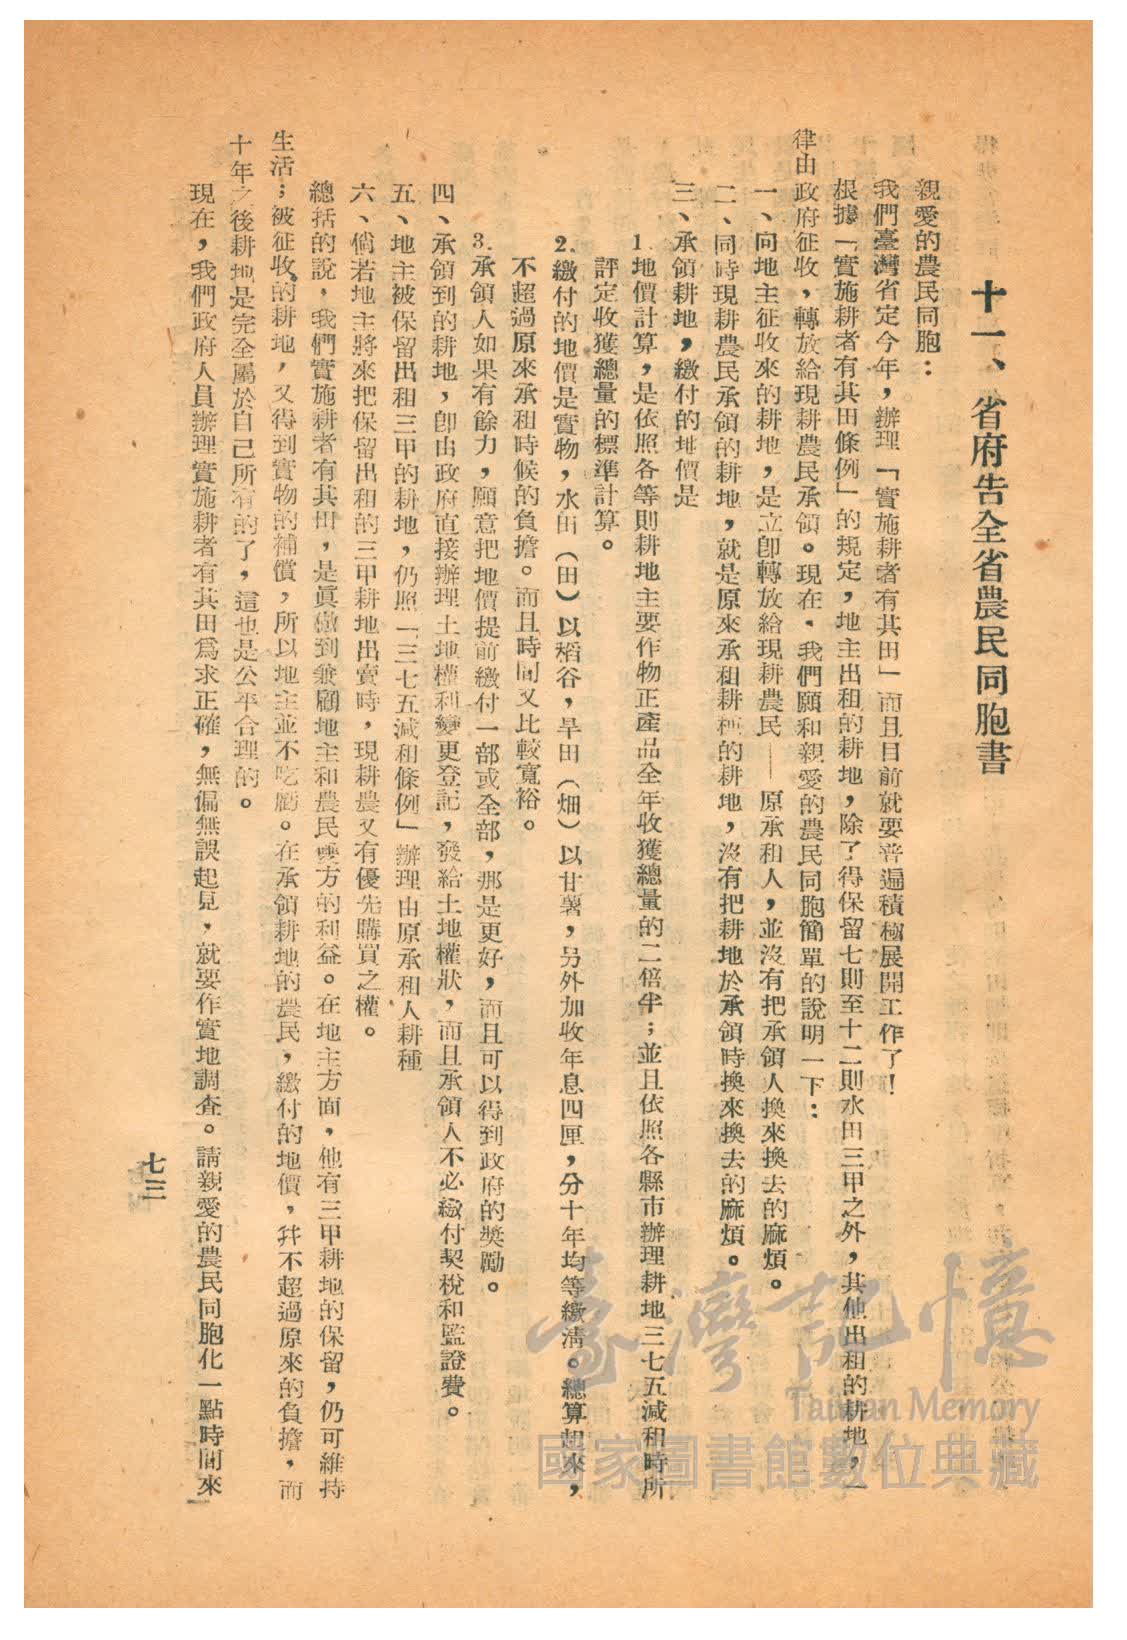 十一、省府告全省農民同胞書
親愛的農民同胞：
我們臺灣省定今年，辦理「實施耕者有其田」而且目前就要普遍積極展開工作了！
根據「實施耕者有其田條例」的規定，地主出租的耕地，除了得保留七則至十二則水田三甲之外，其他出租的耕地，一
律由政府征收，轉放給現耕農民承領。現在，我們願和親愛的農民同胞簡單的說明一下：
一、向地主征收來的耕地，是立卽轉放給現耕農民——原承租人，並沒有把承領人換來換去的麻煩。
二、同時現耕農民承領的耕地，就是原來承租耕種的耕地，沒有把耕地於承領時換來換去的麻煩。
三、承領耕地，繳付的地價是
1.地價計算，是依照各等則耕地主要作物正產品全年收獲總量的二倍半；並且依照各縣市辦理耕地三七五減租時所
評定收獲總量的標準計算。
2.繳付的地價是實物，水田（田）以稻谷，旱田（畑）以甘薯，另外加收年息四厘，分十年均等繳清。總算起來，
不超過原來承租時候的負擔。而且時間又比較寬裕。
3.承領人如果有餘力，願意把地價提前繳付一部或全部，那是更好，而且可以得到政府的獎勵。
四、承領到的耕地，卽由政府直接辦理土地權利變更登記，發給土地權狀，而且承領人不必繳付契稅和監證費。
五、地主被保留出租三甲的耕地，仍照「三七五減租條例」辦理由原承租人耕種
六、倘若地主將來把保留出租的三甲耕地出賣時，現耕農又有優先購買之權。
總括的說，我們實施耕者有其田，是眞做到兼顧地主和農民雙方的利益。在地主方面，他有三甲耕地的保留，仍可維持
生活；被征收的耕地，又得到實物的補償，所以地主並不吃虧。在承領耕地的農民，繳付的地價，并不超過原來的負擔，而
十年之後耕地是完全屬於自己所有的了，這也是公平合理的。
現在，我們政府人員辦理實施耕者有其田爲求正確，無偏無誤起見，就要作實地調查。請親愛的農民同胞化一點時間來
七三
臺灣記憶
Taiwan Memory
國家圖書館數位典藏